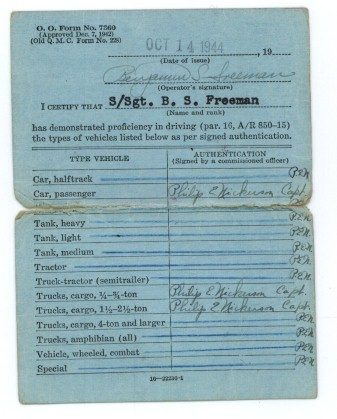 O. O. Form No. 7360
(Approved Dec. 7, 1942)
(Old Q. M. C. Form No. 228)
OCT 14 1944, 19
(Date of issue)
Benjamin S. Freeman
(Operator's signature)
I CERTIFY THAT S/Sgt. B. S. Freeman
(Name and rank)
has demonstrated proficiency in driving (par. 16, A/R 850-15)
the types of vehicles listed below as per signed authentication.
TYPE VEHICLE AUTHENTICATION
(Signed by a commissioned officer)
Car, halftrack PEN
Car, passenger Philip E Nickerson Capt.
Tank, heavy PEN
Tank, light PEN
Tank, medium PEN
Tractor PEN
Truck-tractor (semitrailer) PEN
Trucks, cargo, ¼-¾-ton Philip E Nickerson Capt.
Trucks, cargo, 1½-2½-ton Philip E Nickerson Capt.
Trucks, cargo, 4-ton and larger PEN
Trucks, amphibian (all) PEN
Vehicle, wheeled, combat PEN
Special PEN